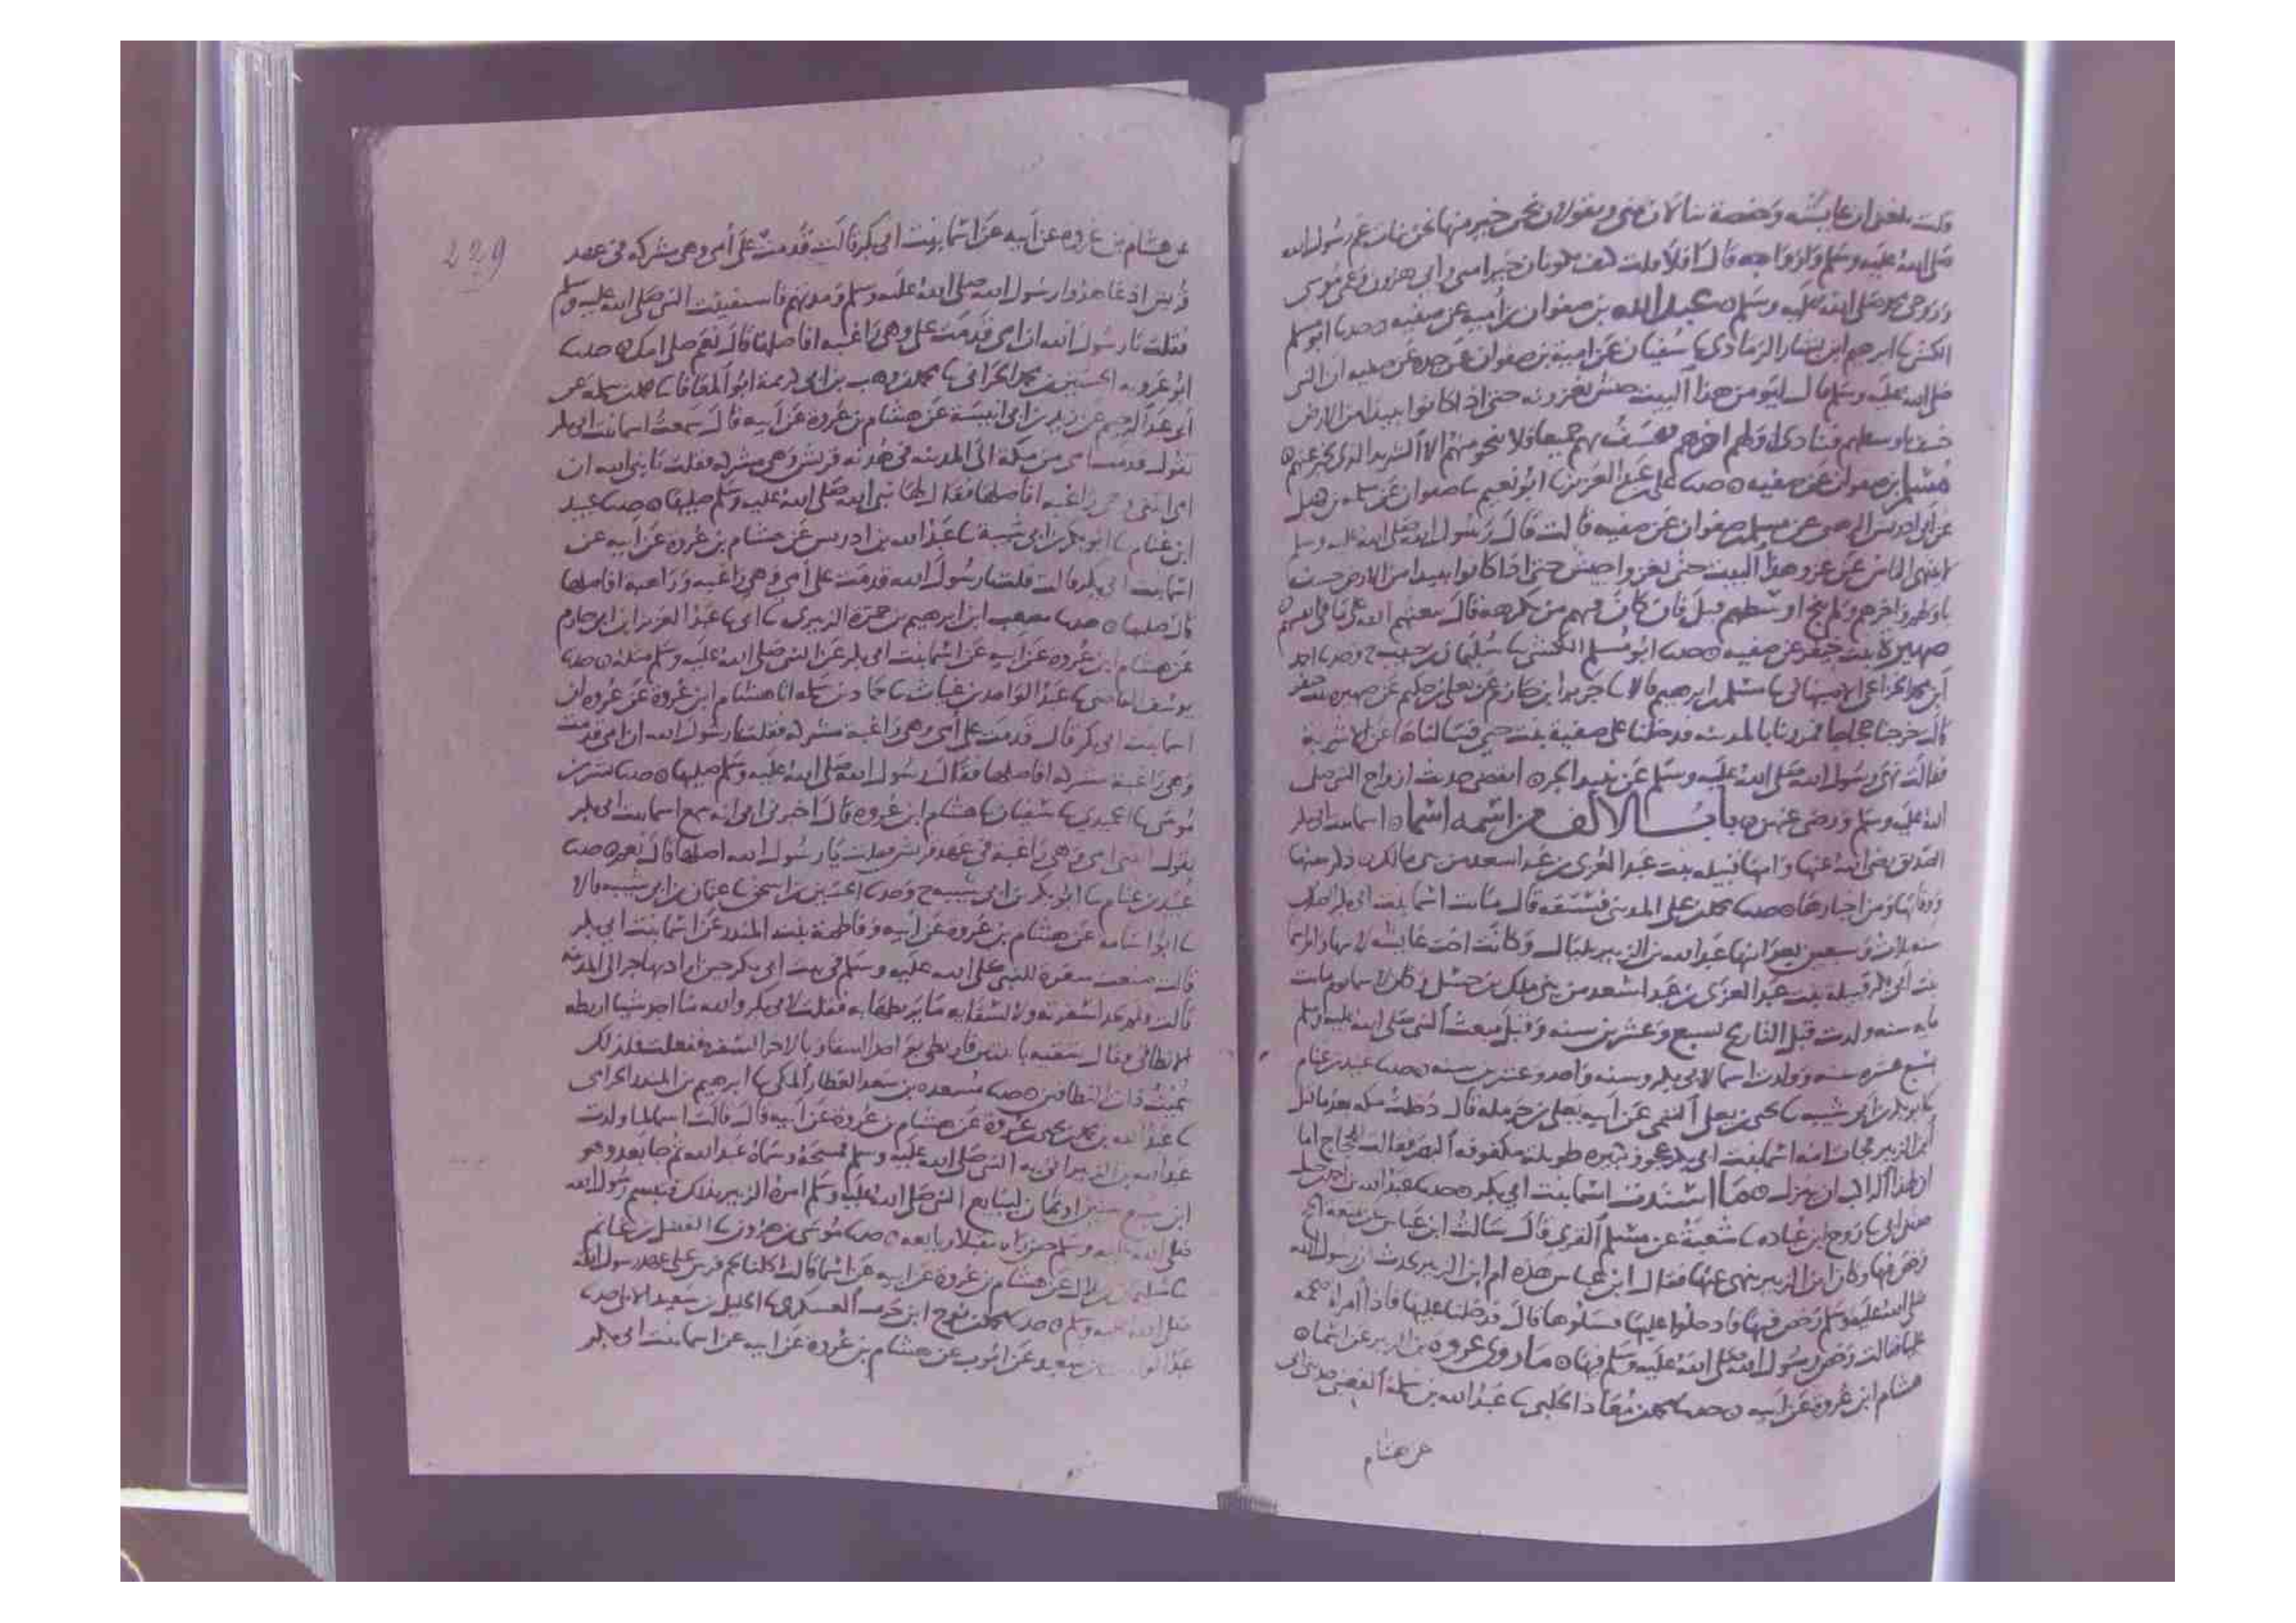 قلت بلغني ان عايشة وحفصة ينالان مني ويقولان نحن خير منها نحن بنات عم رسول الله
صلى الله عليه وسلم وازواجه قال افلا قلت كيف تكونان خير مني وابي هرون وعمي موسى
وزوجي محمد صلى الله عليه وسلم عبد الله بن صفوان بن امية عن صفيه وحدثنا ابو مسلم
الكشي ابراهيم ابن بشار الرمادي سفيان عن امية بن صفوان عن جده عن صفيه ان النبي
صلى الله عليه وسلم قال ليؤمن هذا البيت جيش يغزونه حتى اذا كانوا ببيدا من الارض
خسف باوسطهم فينادي اولهم اخرهم فيخسف بهم جميعا فلا ينجو منهم الا الشريد الذي يخبر عنهم
مسلم بن صفوان عن صفيه حدثنا علي بن عبد العزيز ابو نعيم سفيان عن سلمه بن كهيل
عن ابي ادريس المرهبي عن مسلم بن صفوان عن صفيه قالت قال رسول الله صلى الله عليه وسلم
لا ينتهي الناس عن غزو هذا البيت حتى يغزوا جيش حتى اذا كانوا ببيدا من الارض خسف
باولهم واخرهم ولم ينج اوسطهم قيل فان كان فيهم من يكره قال يبعثهم الله على ما في انفسهم
صهيرة بنت جيفر عن صفيه حدثنا ابو مسلم الكشي سليمان بن حرب ح وحدثنا احمد
ابن محمد الخزاعي الاصبهاني مسلم بن ابراهيم قالا جرير ابن حازم عن يعلى بن حكيم عن صهيره بنت جيفر
قالت خرجنا حجاجا فمررنا بالمدينه فدخلنا على صفية بنت حيي فسالناها عن الاشربة
فقالت نهى رسول الله صلى الله عليه وسلم عن نبيذ الجر انقضى حديث ازواج النبي صلى
الله عليه وسلم ورضي عنهن باب الالف من اسمه اسما اسما بنت ابي بكر
الصديق رضي الله عنها وامها قبيله بنت عبد العزى بن عبد اسعد من بني مالك ذكر سنها
ووفاتها ومن اخبارها حدثنا محمد بن علي المديني فستقه قال ماتت اسما بنت ابي بكر الصديق
سنه ثلاث وسبعين بعد ابنها عبد الله بن الزبير بليال وكانت اخت عايشه لابيها وام اسما
بنت ابي بكر قبيلة بنت عبد العزى بن عبد اسعد من بني ملك بن حسل وكان لاسما يوم ماتت
مايه سنه ولدت قبل التاريخ بسبع وعشرين سنه وقبل مبعث النبي صلى الله عليه وسلم
بسبع عشره سنه وولدت اسما لابي بكر وسنه واحد وعشرين سنه حدثنا عبيد بن غنام
ابو بكر بن ابي شيبه يحيى بن يعلى التيمي عن ابيه يعلى بن حرمله قال دخلت مكه بعد ما قتل
ابن الزبير فجات امه اسما بنت ابي بكر عجوز كبيره طويله مكفوفه البصر فقالت للحجاج اما
ان لهذا الراكب ان ينزل ما اسندت اسما بنت ابي بكر حدثنا عبد الله بن احمد بن حنبل
حدثني ابي روح ابن عباده شعبة عن مسلم القري قال سالت ابن عباس عن متعة الحج
فرخص فيها وكان ابن الزبير ينهى عنها فقال ابن عباس هذه ام ابن الزبير تحدث ان رسول الله
صلى الله عليه وسلم رخص فيها فادخلوا عليها فسلوها قال فدخلنا عليها فاذا امراة ضخمه
عميا فقالت رخص رسول الله صلى الله عليه وسلم فيها ما روى عروه بن الزبير عن اسما
هشام ابن عروة عن ابيه حدثنا محمد بن معاذ الحلبي عبد الله بن مسلمة القعنبي حدثني ابي
عن هشام
229
عن هشام بن عروه عن ابيه عن اسما بنت ابي بكر قالت قدمت علي امي وهي مشركه في عهد
قريش اذ عاهدوا رسول الله صلى الله عليه وسلم ومدتهم فاستفتيت النبي صلى الله عليه وسلم
فقلت يا رسول الله ان امي قدمت علي وهي راغبه افاصلها قال نعم صلي امك حدثنا
ابو عروبه الحسين بن محمد الحراني محمد بن وهب بن ابي كريمة ابو المعافا محمد بن سلمه عن
ابي عبد الرحيم عن زيد بن ابي انيسة عن هشام بن عروة عن ابيه قال سمعت اسما بنت ابي بكر
تقول قدمت امي من مكة الى المدينه في هدنه قريش وهي مشركه فقلت يا نبي الله ان
امي اتتني وهي راغبه افاصلها فقال لها نبي الله صلى الله عليه وسلم صليها حدثنا عبيد
ابن غنام ابو بكر بن ابي شيبة عبد الله بن ادريس عن هشام بن عروة عن ابيه عن
اسما بنت ابي بكر قالت قلت يا رسول الله قدمت علي امي وهي راغبه وراهبه افاصلها
قال صليها حدثنا مصعب ابن ابراهيم بن حمزة الزبيري ابي عبد العزيز ابن ابي حازم
عن هشام ابن عروة عن ابيه عن اسما بنت ابي بكر عن النبي صلى الله عليه وسلم مثله حدثنا
يوسف القاضي عبد الواحد بن غياث حماد بن سلمه انا هشام ابن عروة عن عروه ان
اسما بنت ابي بكر قال قدمت علي امي وهي راغبة مشركه فقلت يا رسول الله ان امي قدمت
وهي راغبة مشركه افاصلها فقال رسول الله صلى الله عليه وسلم صليها حدثنا بشر بن
موسى الحميدي سفيان هشام ابن عروه قال اخبرني ابي انه سمع اسما بنت ابي بكر
تقول اتتني امي وهي راغبة في عهد قريش فقلت يا رسول الله اصلها قال نعم حدثنا
عبيد بن غنام ابو بكر بن ابي شيبه ح وحدثنا الحسين بن اسحق عثمان بن ابي شيبه قالا
ابو اسامه عن هشام بن عروة عن ابيه وفاطمة بنت المنذر عن اسما بنت ابي بكر
قالت صنعت سفرة للنبي صلى الله عليه وسلم في بيت ابي بكر حين اراد يهاجر الى المدينه
قالت ولم نجد لسفرته ولا لسقايه ما يربطهما به فقلت لابي بكر والله ما اجد شيا اربطه
الا نطاقي فقال شقيه باثنين فاربطي بواحد السقا وبالاخر السفره ففعلت فلذلك
سميت ذات النطاقين حدثنا مسعده بن سعد العطار المكي ابراهيم بن المنذر الحزامي
عبد الله بن محمد بن يحيى بن عروة عن هشام بن عروة عن ابيه قال قالت اسما لما ولدت
عبد الله بن الزبير اتي به النبي صلى الله عليه وسلم فمسحه وسماه عبد الله ثم جا بعد وهو
ابن سبع سنين او ثمان ليبايع النبي صلى الله عليه وسلم امره الزبير بذلك فتبسم رسول الله
صلى الله عليه وسلم حين راه مقبلا وبايعه حدثنا موسى بن هارون الفضل بن غانم
سليمان بن بلال عن هشام بن عروة عن ابيه عن اسما قالت اكلنا لحم فرس على عهد رسول الله
صلى الله عليه وسلم حدثنا محمد بن نوح ابن حرب العسكري الخليل بن سعيد حدثنا
بن سعيد عن ايوب عن هشام بن عروة عن ابيه عن اسما بنت ابي بكر